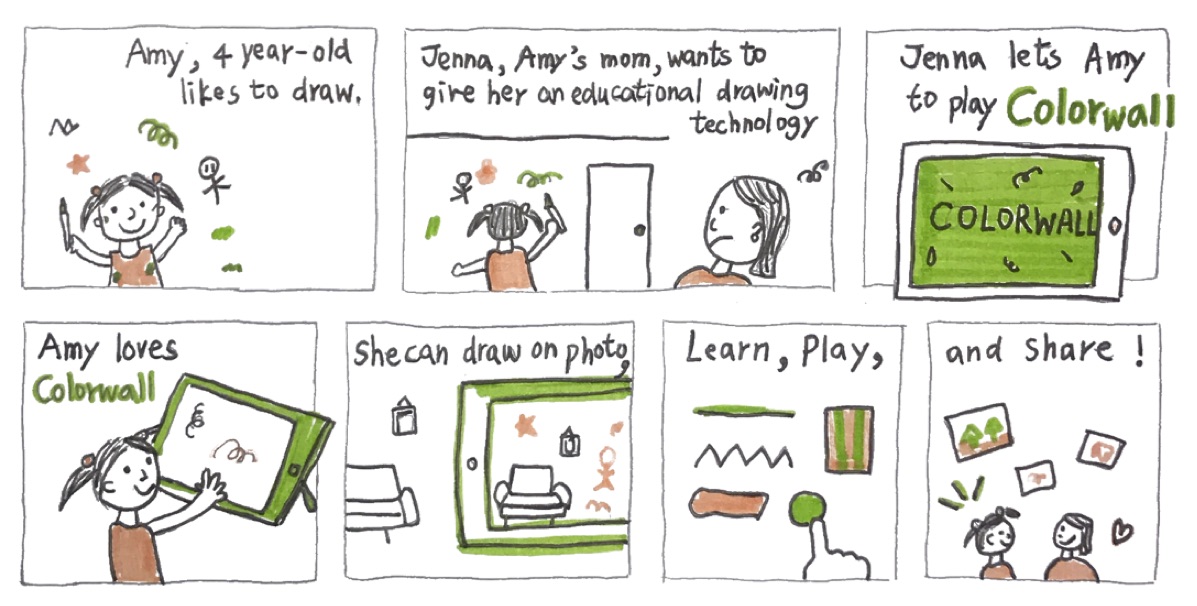 Amy, 4 year-old
likes to draw.
Jenna, Amy's mom, wants to
give her an educational drawing
technology
Jenna lets Amy
to play Colorwall
COLORWALL
Amy loves
Colorwall
She can draw on photo,
Learn, Play,
and share !